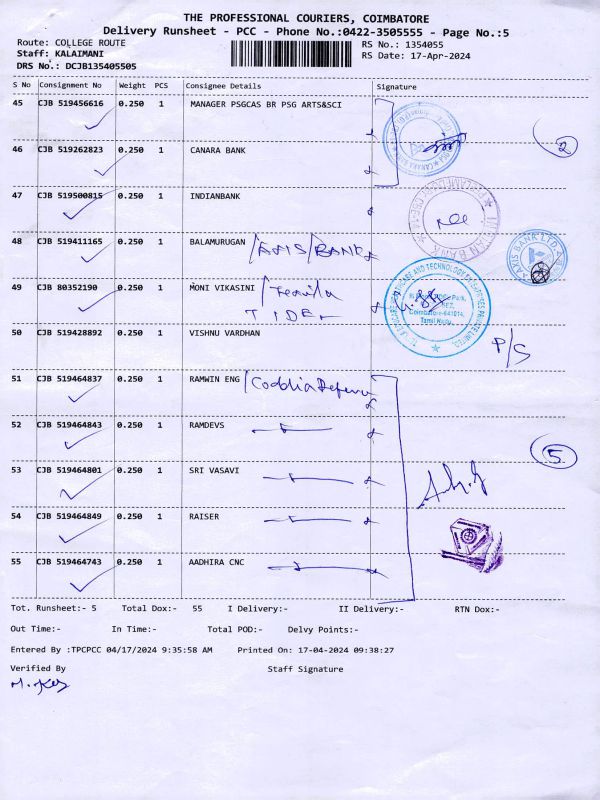 THE PROFESSIONAL COURIERS, COIMBATORE
Delivery Runsheet - PCC - Phone No.:0422-3505555 - Page No.:5
Route: COLLEGE ROUTE
RS No.: 1354055
Staff: KALAIMANI
RS Date: 17-Apr-2024
DRS No.: DCJB135405505
S No Consignment No Weight PCS Consignee Details Signature
45 CJB 519456616 0.250 1 MANAGER PSGCAS BR PSG ARTS&SCI
2
46 CJB 519262823 0.250 1 CANARA BANK
47 CJB 519500815 0.250 1 INDIANBANK
48 CJB 519411165 0.250 1 BALAMURUGAN /AXIS/BANK
AXIS BANK LTD.
49 CJB 80352190 0.250 1 MONI VIKASINI
TIDEL
Coimbatore-641014,
Tamil Nadu.
50 CJB 519428892 0.250 1 VISHNU VARDHAN
P/S
51 CJB 519464837 0.250 1 RAMWIN ENG
52 CJB 519464843 0.250 1 RAMDEVS
5
53 CJB 519464801 0.250 1 SRI VASAVI
54 CJB 519464849 0.250 1 RAISER
55 CJB 519464743 0.250 1 AADHIRA CNC
Tot. Runsheet:- 5 Total Dox:- 55 I Delivery:- II Delivery:- RTN Dox:-
Out Time:- In Time:- Total POD:- Delvy Points:-
Entered By :TPCPCC 04/17/2024 9:35:58 AM Printed On: 17-04-2024 09:38:27
Verified By Staff Signature